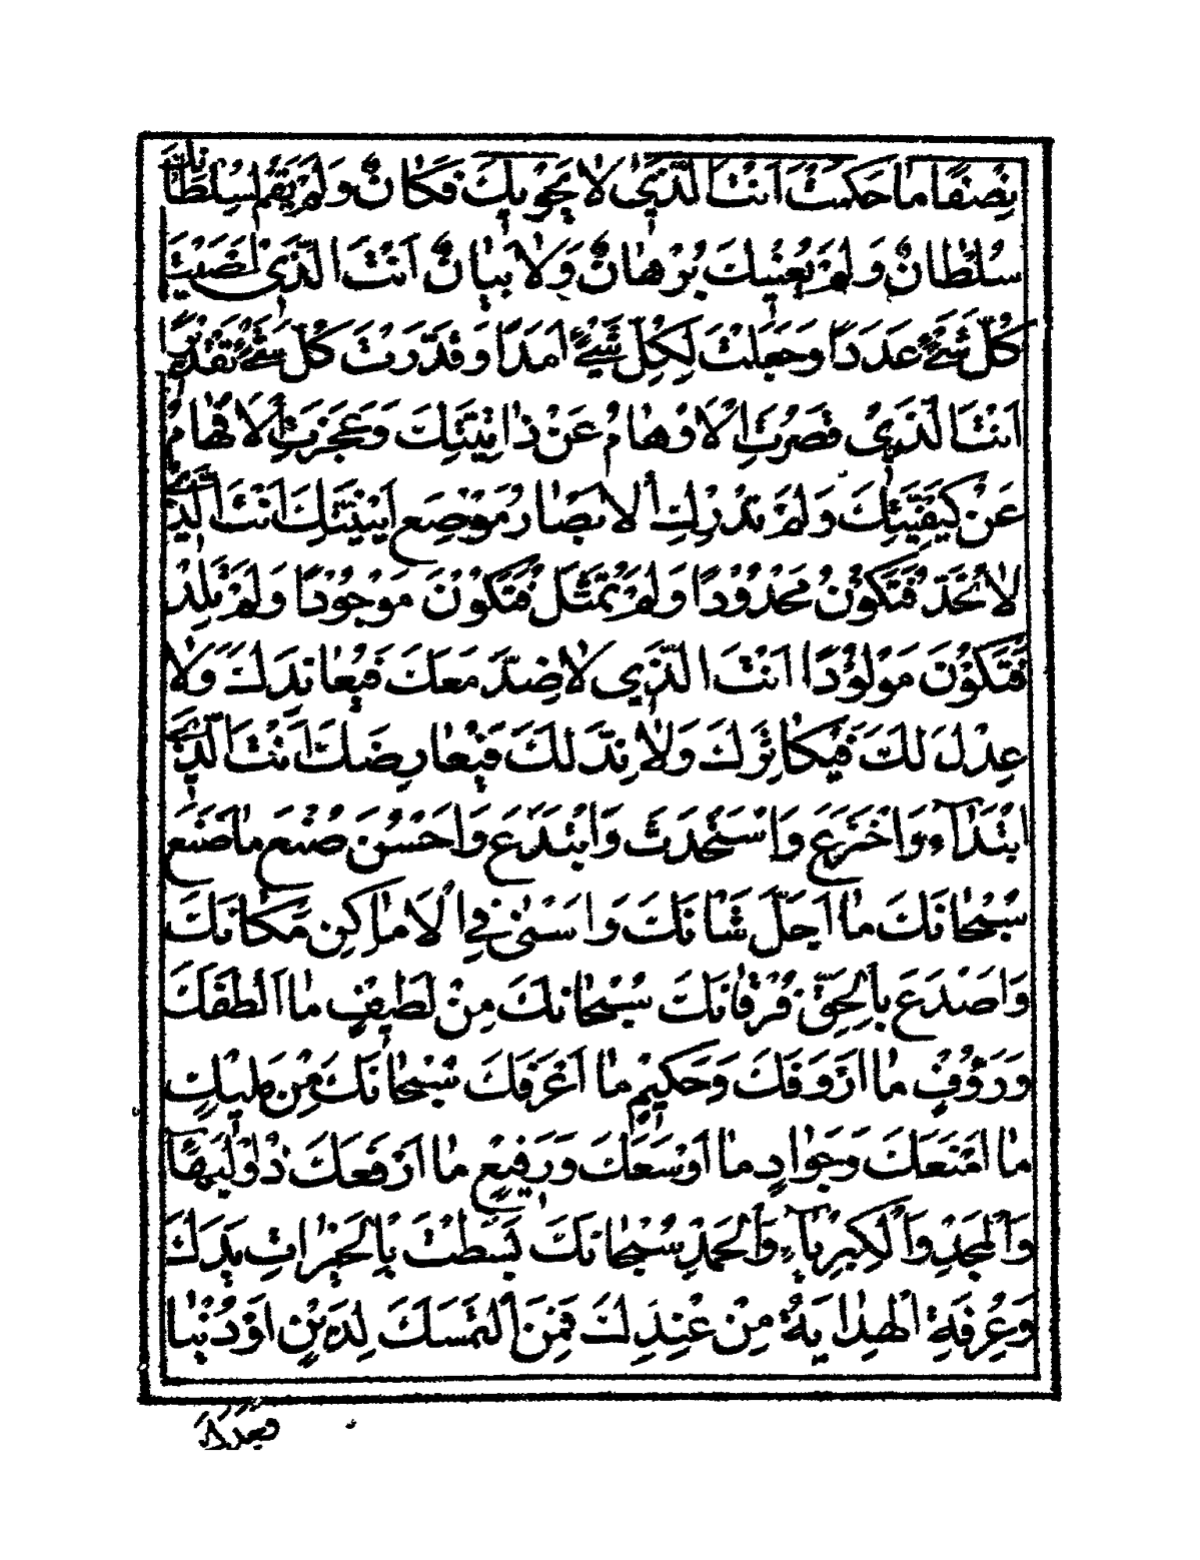 نِصْفًا مَا حَكَمْتَ اَنْتَ الَّذِي لَا يَحْوِيكَ مَكَانٌ وَلَمْ يَقُمْ لِسُلْطَانِكَ
سُلْطَانٌ وَلَمْ يُعْيِكَ بُرْهَانٌ وَلَا بَيَانٌ اَنْتَ الَّذِي اَحْصَيْتَ
كُلَّ شَيْءٍ عَدَدًا وَجَعَلْتَ لِكُلِّ شَيْءٍ اَمَدًا وَقَدَّرْتَ كُلَّ شَيْءٍ تَقْدِيرًا
اَنْتَ الَّذِي قَصُرَتِ الْاَوْهَامُ عَنْ ذَاتِيَّتِكَ وَعَجَزَتِ الْاَفْهَامُ
عَنْ كَيْفِيَّتِكَ وَلَمْ تُدْرِكِ الْاَبْصَارُ مَوْضِعَ اَيْنِيَّتِكَ اَنْتَ الَّذِي
لَا تُحَدُّ فَتَكُوْنَ مَحْدُوْدًا وَلَمْ تُمَثَّلْ فَتَكُوْنَ مَوْجُوْدًا وَلَمْ تَلِدْ
فَتَكُوْنَ مَوْلُوْدًا اَنْتَ الَّذِي لَا ضِدَّ مَعَكَ فَيُعَانِدَكَ وَلَا
عِدْلَ لَكَ فَيُكَاثِرَكَ وَلَا نِدَّ لَكَ فَيُعَارِضَكَ اَنْتَ الَّذِي
ابْتَدَاَءَ وَاخْتَرَعَ وَاسْتَحْدَثَ وَابْتَدَعَ وَاَحْسَنَ صُنْعَ مَا صَنَعَ
سُبْحَانَكَ مَا اَجَلَّ شَانَكَ وَاَسْنٰى فِي الْاَمَاكِنِ مَكَانَكَ
وَاَصْدَعَ بِالْحَقِّ فُرْقَانَكَ سُبْحَانَكَ مِنْ لَطِيفٍ مَا اَلْطَفَكَ
وَرَؤُفٍ مَا اَرْوَفَكَ وَحَكِيمٍ مَا اَعْرَفَكَ سُبْحَانَكَ مِنْ مَلِيكٍ
مَا اَمْنَعَكَ وَجَوَادٍ مَا اَوْسَعَكَ وَرَفِيعٍ مَا اَرْفَعَكَ ذُو الْبَهَاءِ
وَالْمَجْدِ وَالْكِبْرِيَاءِ وَالْحَمْدِ سُبْحَانَكَ بَسَطْتَ بِالْخَيْرَاتِ يَدَكَ
وَعُرِفَةِ الْهِدَايَةُ مِنْ عِنْدِكَ فَمَنِ الْتَمَسَكَ لِدِيْنٍ اَوْ دُنْيَا
وَجَدَكَ